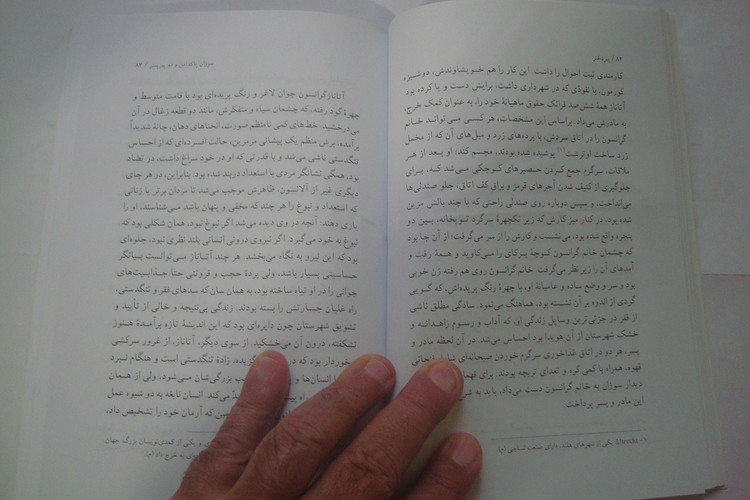 ۵۶ / پیردختر
کارمندی ثبت احوال را داشت. این کار را هم خویشاوندش، دوتسیز،
کورمون، با نفوذی که در شهرداری داشت، برایش دست و پا کرده بود
آتاناز همهٔ شش‌صد فرانک حقوق ماهیانهٔ خود را، به عنوان کمک خرج،
به مادرش می‌داد. براساس این مشخصات، هر کسی می‌تواند خانم
گرانسون را در اتاق سردش، با پرده‌های زرد و مبل‌های آن که از مخمل
زرد ساخت اوترشت(۱) پوشیده شده بودند، مجسم کند؛ او بعد از هر
ملاقات، سرگرم جمع کردن حصیرهای کوچکی می‌شد که، برای
جلوگیری از کثیف شدن آجرهای قرمز و براق کف اتاق، جلو صندلی‌ها
می‌انداخت، و سپس دوباره روی صندلی راحتی که با چند بالش مزین
شده بود، در کنار میز کارش که زیر تکچهرهٔ سرگرد توپخانه، بین دو
پنجره واقع شده بود، می‌نشست و کارش را از سر می‌گرفت؛ از آن جا بود
که چشمان خانم گرانسون کوچهٔ برکای را می‌کاوید و همهٔ رفت و
آمدهای آن را زیر نظر می‌گرفت. خانم گرانسون روی هم رفته زن خوبی
بود و سر و وضع ساده و عامیانهٔ او، با چهرهٔ رنگ پریده‌اش، که گویی
گردی از اندوه بر آن نشسته بود، هماهنگ می‌نمود. سادگی مطلق ناشی
از فقر در جزئی‌ترین وسایل زندگی او، که آداب و رسوم زاهدانه و
خشک شهرستان از آن هویدا بود احساس می‌شد. در آن لحظه مادر و
پسر، هر دو در اتاق غذاخوری سرگرم خوردن صبحانه‌ای شامل فنجانی
قهوه، همراه با کمی کره و تعدای تربچه بودند. برای فهما
دیدار سوزان به خانم گرانسون دست می‌داد، باید به شر
این مادر و پسر پرداخت.
۱- Utrecht یکی از شهرهای هلند، دارای صنعت نساجی (م).
سوزان پاکدامن و دو پیرپسر / ۵۷
آتانازگرانسون جوان لاغر و رنگ پریده‌ای بود با قامت متوسط و
چهرهٔ گود رفته، که چشمان سیاه و متفکرش، مانند دو قطعه زغال در آن
می‌درخشید. خط‌های کمی نامنظم صورت، انحناهای دهان، چانهٔ شدیداً
برآمده، برش منظم یک پیشانی مرمرین، حالت افسرده‌ای که از احساس
تنگدستی ناشی می‌شد و با قدرتی که او در خود سراغ داشت، در تضاد
بود، همگی نشانگر مردی با استعداد دربند شده بود. بنابراین، در هر جای
دیگری غیر از آلانسون، ظاهرش موجب می‌شد تا مردان برتر یا زنانی
که استعداد و نبوغ را هر چند که مخفی و پنهان باشد می‌شناسند، او را
یاری دهند؛ آنچه در وی دیده می‌شد اگر نبوغ نبود، همان شکلی بود که
نبوغ به خود می‌گیرد. اگر نیروی درونی انسانی بلند نظری نبود، جلوه‌ای
بود که این نیرو به نگاه می‌بخشد. هر چند آتاناز می‌توانست بیانگر
حساسیتی بسیار باشد، ولی پردهٔ حجب و فروتنی حتا جذابیت‌های
جوانی را در او تباه ساخته بود، به همان سان که سدهای فقر و تنگدستی،
راه غلیان جسارتش را بسته بودند. زندگی بی‌نتیجه و خالی از تأیید و
تشویق شهرستان چون دایره‌ای بود که این اندیشهٔ تازه برآمدهٔ هنوز
نشکفته، درون آن می‌خشکید. از سوی دیگر، آتاناز، از غرور سرکشی
برخوردار بود که در گزیده، زادهٔ تنگدستی است و هنگام نبرد
با انسان‌ها و بزرگی‌شان می‌شود، ولی از همان
راه پیش می‌کند. انسان نابغه به دو شیوه عمل
مین که آرمان خود را تشخیص داد،
و یکی از کمدی‌نویسان بزرگ جهان
به خرج داد (م).